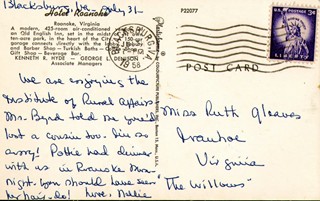 Blacksburg, Va. July 31-
Hotel Roanoke
Roanoke, Virginia
A modern, 425-room air-conditioned
an Old English Inn, set in the midst of a
ten-acre park, in the heart of the City. 150-car
garage connects directly with the Lobby
and Barber Shop - Turkish Baths -
Gift Shop - Beverage Bar.
KENNETH R. HYDE - GEORGE L. DENISON
Associate Managers
We are enjoying the
Institute of Rural Affairs
Mrs. Byrd told me you'd
lost a cousin too. I'm so
sorry! Pattie had dinner
with us in Roanoke Mon.
night. You should have seen
her hair-do! Love,
P22077
BLACKSBURG, VA.
1956
3¢
LIBERTY
POST CARD
Miss Ruth Gleaves
Ivanhoe
Virginia
"The Willows"